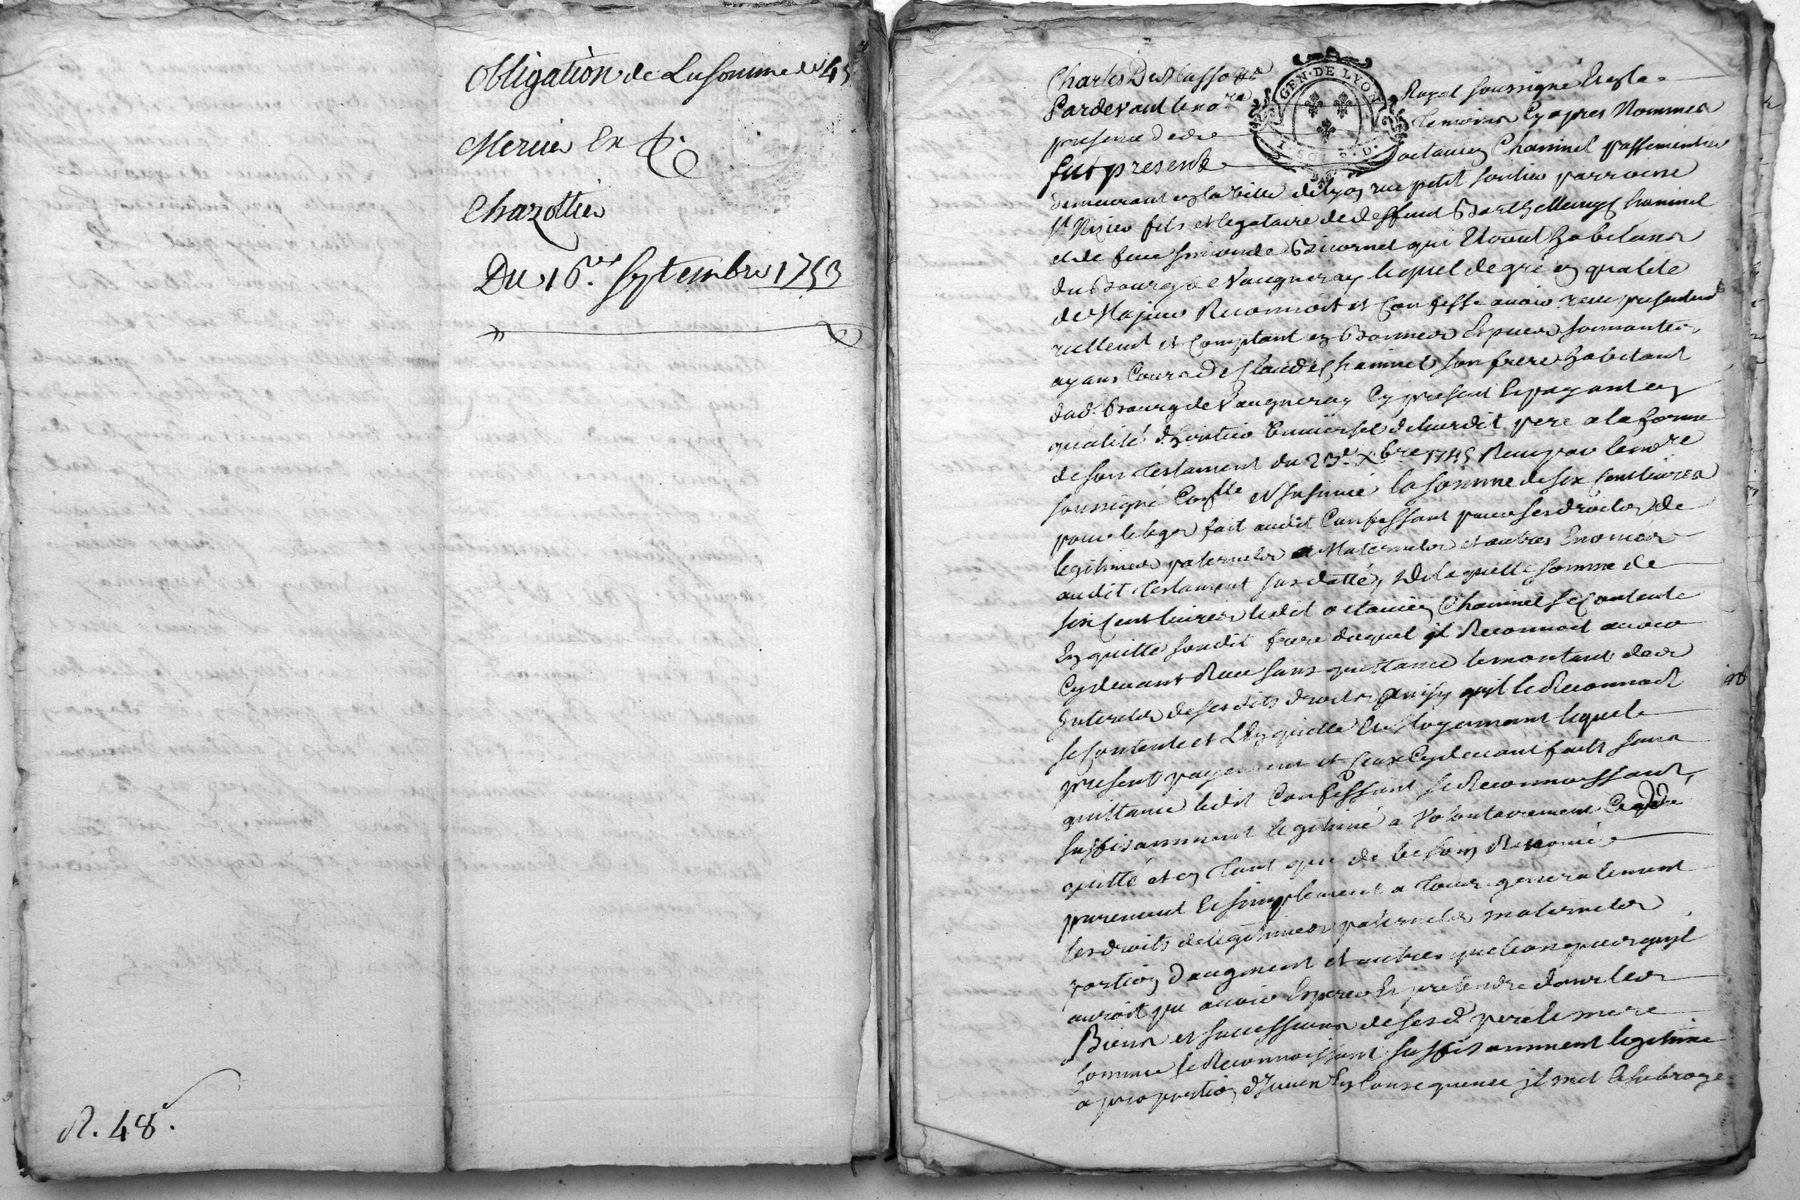 Obligation de La somme de 45
Mercier En
Chazottier
Du 16.e Septembre 1753
R. 48.
Charles De
Pardevant le no.re Royal soussigné Et es la
presence de de temoins Cy apres Nommes
fut present octavien Chaminel passementier
GEN. DE LYON
demeurant en la ville de Lyon rue petit soulier parroisse
St Nizier fils et legataire de deffunt Barthellemy Chaminel
et de feue simonde Bicornet qui Etoient habitans
du Bourg de Vaugneray lequel de gré en qualité
de Majeur Reconnoit et Confesse avoir reçu presente
reellemt et Comptant en Bonnes Especes sonnantes
ayans Cours de Claude Chaminel son frere habitant
dud. Bourg de Vaugneray Cy present Et payant en
qualité d'heritier Universel de leurdit pere a la forme
de son testament du 23.e Xbre 1745 Reçu par le no.re
soussigné Con.lle et Insinué la somme de six Cent livres
pour le legs fait audit Confessant pour ses droits de
legitimes paternels et Maternels et autres Enoncés
audit testament susdatté, De laquelle somme de
six Cent livres ledit octavien Chaminel se Contente
En quitte sondit frere duquel il Reconnoit avoir
Cydevant Reçu sans quittance le montant des
Interets de sesdits droits ainsy qu'il le Reconnoit
se Contente et L'En quitte Et Moyennant lequel
present payement et ceux Cydevant faits sans
quittance ledit Confessant se Reconnoissant
suffisamment legitimé a Volontairement Cedé
quitté et en tant que de besoin Renoncé
purement Et simplement a tous generalement
les droits de legitimes paternels maternels
portion d'augment et autres quelconques qu'il
auroit pu avoir Esperer Et pretendre dans les
Biens et successions de sesd. pere Et mere
Comme se Reconnoissant suffisamment legitimé
a proportion d'Iceux En Consequence il met Et subroge